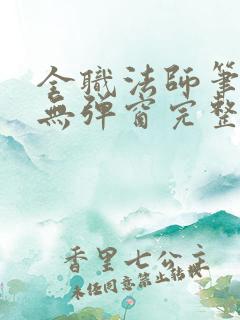 全職法師筆
無彈窗完整
香里七公主
未经同意禁止转载